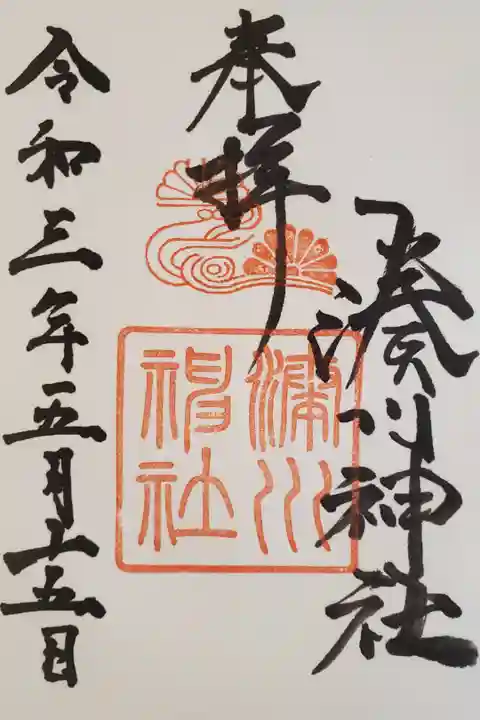 奉拝
湊川神社
湊川
神社
令和三年五月十五日